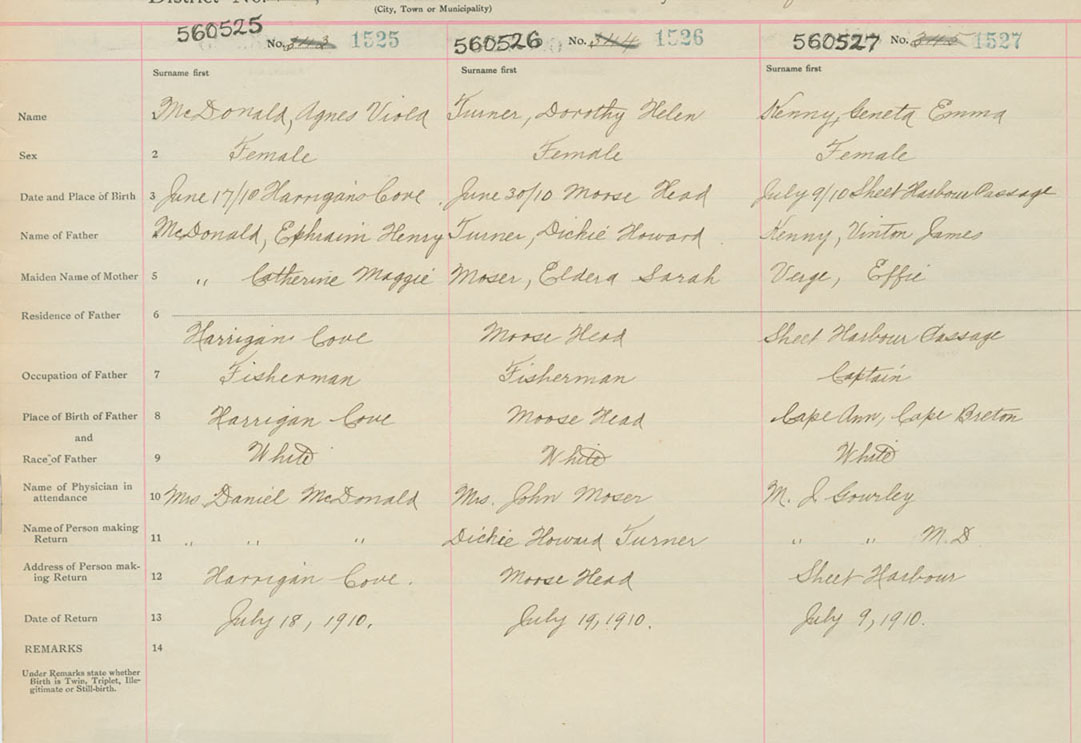 District No.
(City, Town or Municipality)
560525 No. 343 1525 560526 No. 344 1526 560527 No. 345 1527
Surname first Surname first Surname first
Name 1 McDonald, Agnes Viola Turner, Dorothy Helen Kenny, Geneta Emma
Sex 2 Female Female Female
Date and Place of Birth 3 June 17/10 Harrigans Cove June 30/10 Moose Head July 9/10 Sheet Harbour Passage
Name of Father McDonald, Ephraim Henry Turner, Dickie Howard Kenny, Vinton James
Maiden Name of Mother 5 " Catherine Maggie Moser, Eldera Sarah Verge, Effie
Residence of Father 6
Harrigan Cove Moose Head Sheet Harbour Passage
Occupation of Father 7 Fisherman Fisherman Captain
Place of Birth of Father 8 Harrigan Cove Moose Head Cape Ann, Cape Breton
and
Race of Father 9 White White White
Name of Physician in
attendance 10 Mrs Daniel McDonald Mrs. John Moser M. J. Gourley
Name of Person making
Return 11 " " " Dickie Howard Turner " " M.D
Address of Person mak-
ing Return 12 Harrigan Cove. Moose Head Sheet Harbour
Date of Return 13 July 18, 1910. July 19, 1910. July 9, 1910.
REMARKS 14
Under Remarks state whether
Birth is Twin, Triplet, Ille-
gitimate or Still-birth.